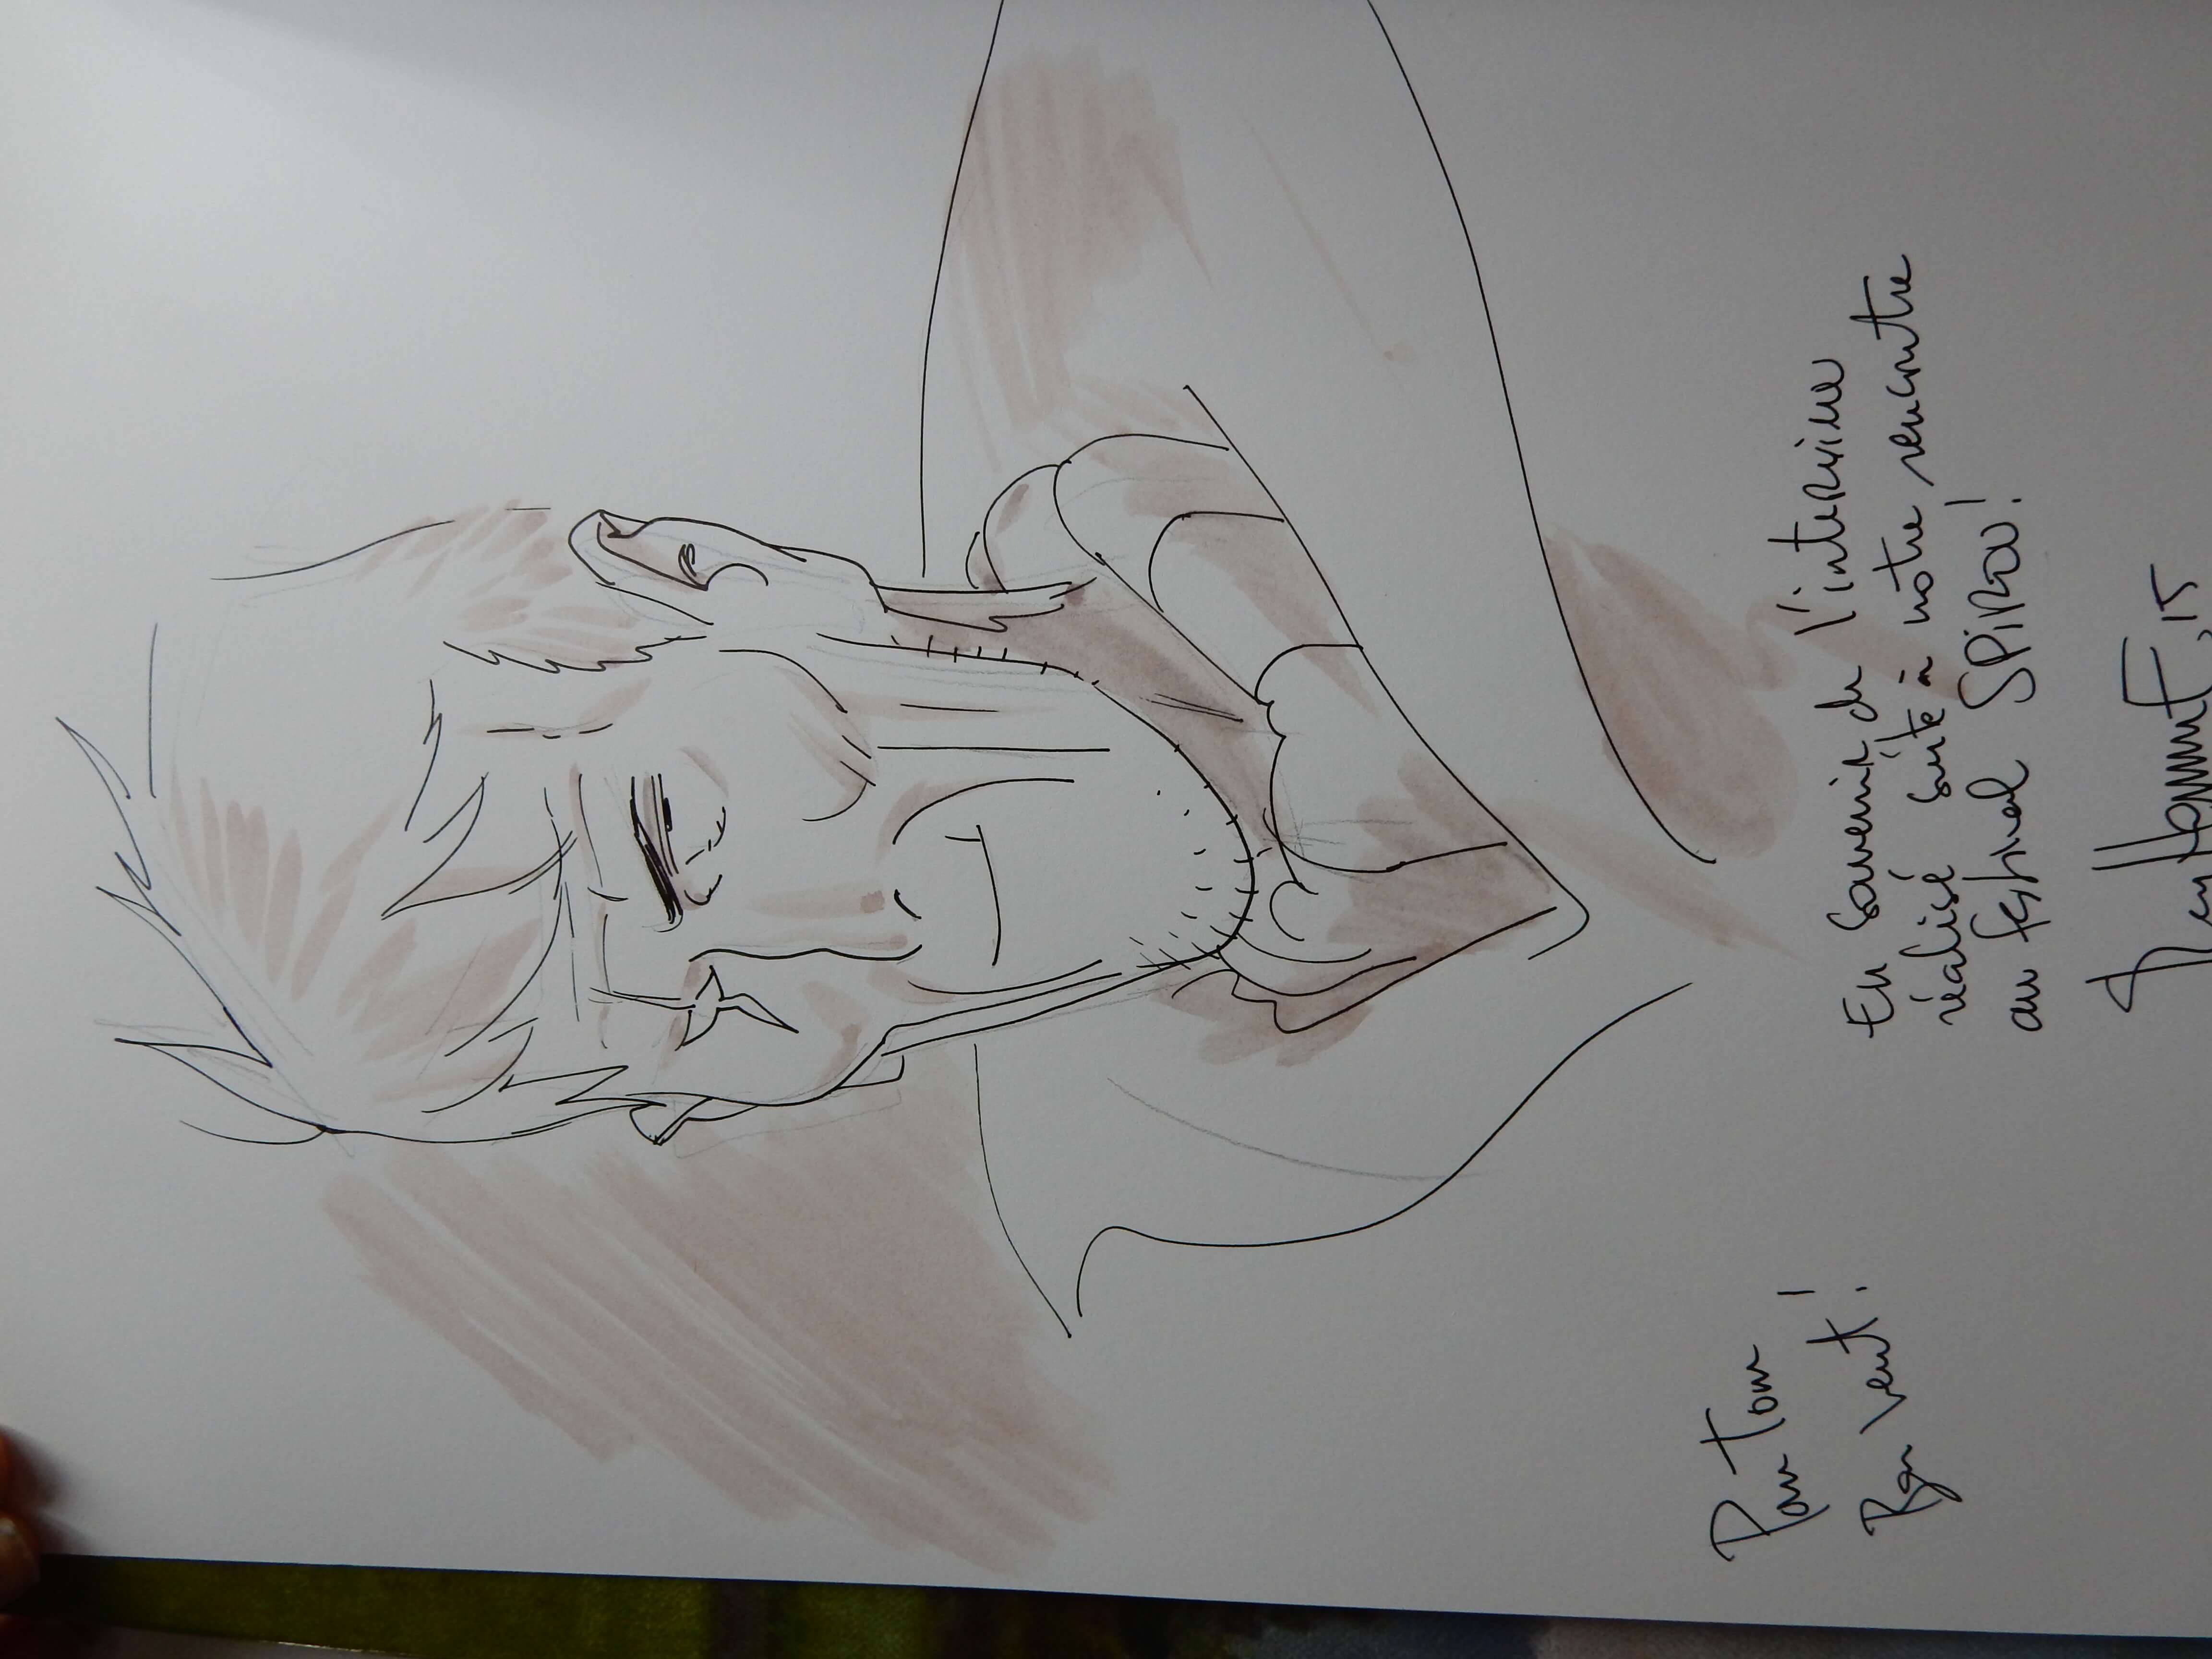 Pour Tom
Bon vent!
En souvenir de l'interview
réalisé suite à notre rencontre
au festival SPIROU!
15